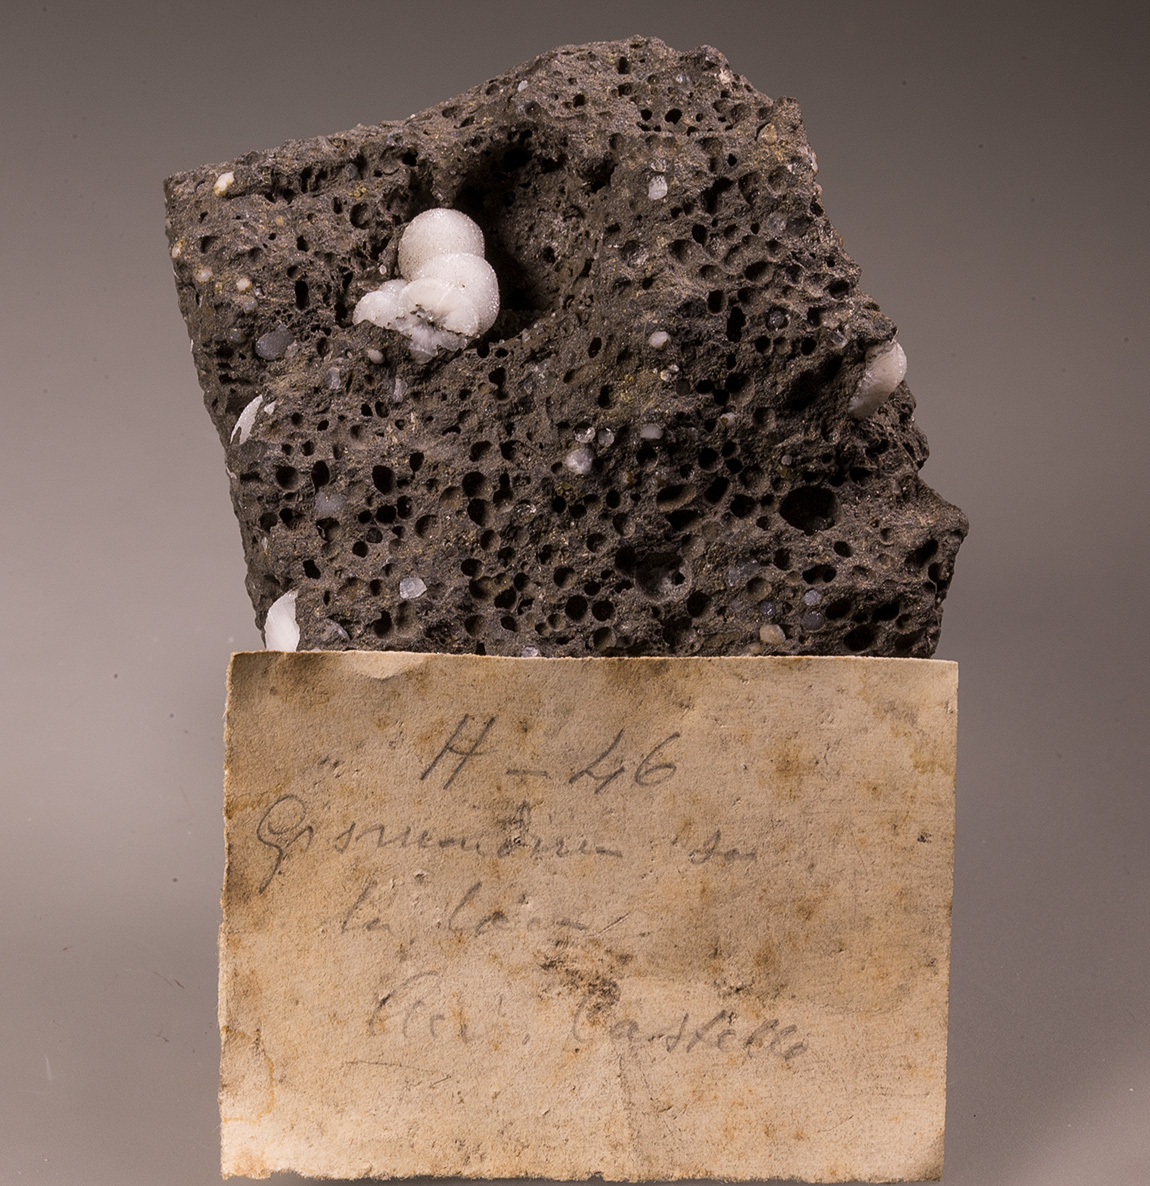 H - 46
Gismondina su
la lava
Castello